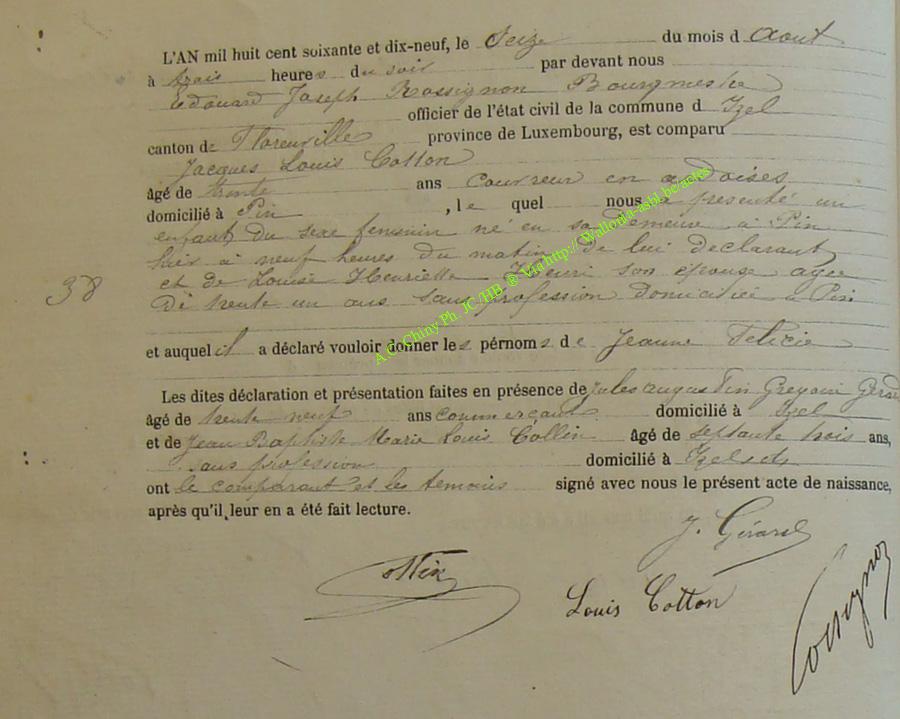 L'AN mil huit cent soixante et dix-neuf, le Seize du mois d Aout
à trois heures du soir par devant nous
Edouard Joseph Rossignon Bourgmestre
officier de l'état civil de la commune d Izel
canton de Florenville province de Luxembourg, est comparu
Jacques Louis Cotton
âgé de trente ans couvreur en ardoises
domicilié à Pin , le quel nous a présenté un
enfant du sexe feminin né en sa demeure à Pin
à neuf heures du matin de lui déclarant
et de Louise Henriette Henri son épouse agée
De trente un ans sans profession domiciliée à Pin
38
et auquel il a déclaré vouloir donner les pérnoms de Jeanne Felicie
Les dites déclaration et présentation faites en présence de Jules Gérard
âgé de trente neuf ans commerçant domicilié à Izel
et de Jean Baptiste Marie Louis Collin âgé de septante trois ans,
sans profession domicilié à Izel
ont le comparant et les temoins signé avec nous le présent acte de naissance,
après qu'il leur en a été fait lecture.
J. Gérard
Louis Cotton
A.C. Chiny Ph. JC/HB @ Via http://Wallonia-asbl.be/actes